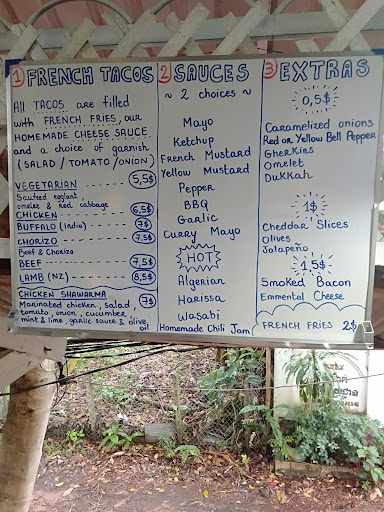 1 FRENCH TACOS
All TACOS are filled
with FRENCH FRIES, our
HOMEMADE CHEESE SAUCE
and a choice of garnish
(SALAD / TOMATO / ONION)
VEGETARIAN 5,5$
Sauteed egglant,
omelet & red cabbage
CHICKEN 6,5$
BUFFALO (India) 7$
CHORIZO 7,5$
Beef & Chorizo
BEEF 7,5$
LAMB (NZ) 8,5$
CHICKEN SHAWARMA
Marinated chicken, salad, 7$
tomato, onion, cucumber,
mint & lime, garlic sauce & olive
oil
2 SAUCES
~ 2 choices ~
Mayo
Ketchup
French Mustard
Yellow Mustard
Pepper
BBQ
Garlic
Curry Mayo
HOT
Algerian
Harissa
Wasabi
Homemade Chili Jam
3 EXTRAS
0,5$
Caramelized onions
Red or Yellow Bell Pepper
Gherkins
Omelet
Dukkah
1$
Cheddar Slices
Olives
Jalapeño
1,5$
Smoked Bacon
Emmental Cheese
FRENCH FRIES 2$